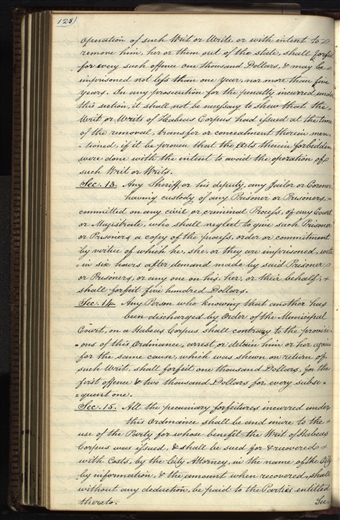 128
operation of such Writ or Writs, or with intent to
remove him, her or them out of the state, shall forfeit
for every such offence one thousand Dollars, & may be
imprisoned not less than one year, nor more than five
years. In any prosecution for the penalty incurred under
this section, it shall not be necessary to shew that the
Writ or Writs of Habeas Corpus had issued at the time
of the removal, transfer or concealment therein men-
tioned, if it be proven that the acts therein forbidden
were done with the intent to avoid the operation of
such Writ or Writs.
Sec. 13. Any Sheriff, or his deputy, any Jailor or Coroner
having custody of any Prisoner or Prisoners,
committed on any civil or criminal Process, of any Court
or Magistrate, who shall neglect to give such Prisoner
or Prisoners a copy of the process, order or commitment
by virtue of which he, she or they are imprisoned, with
in six hours after demand made by said Prisoner
or Prisoners, or any one on his, her, or their behalf,
shall forfeit five hundred Dollars.
Sec. 14. Any Person who knowing that another has
been discharged by order of the Municipal
Court, on a Habeas Corpus shall contrary to the provisi-
ons of this Ordinance, arrest or detain him or her again
for the same cause, which was shewn on return of
such Writ, shall forfeit one thousand Dollars, for the
first offence & two thousand Dollars for every subse-
quent one.
Sec. 15. All the pecuniary forfeitures incurred under
this Ordinance shall be and inure to the
use of the Party for whose benefit the Writ of Habeas
Corpus was issued, & shall be sued for & recovered
with Costs, by the City Attorney, in the name of the City
by information, & the amount when recovered, shall
without any deduction, be paid to the Parties entitled
thereto. Sec.